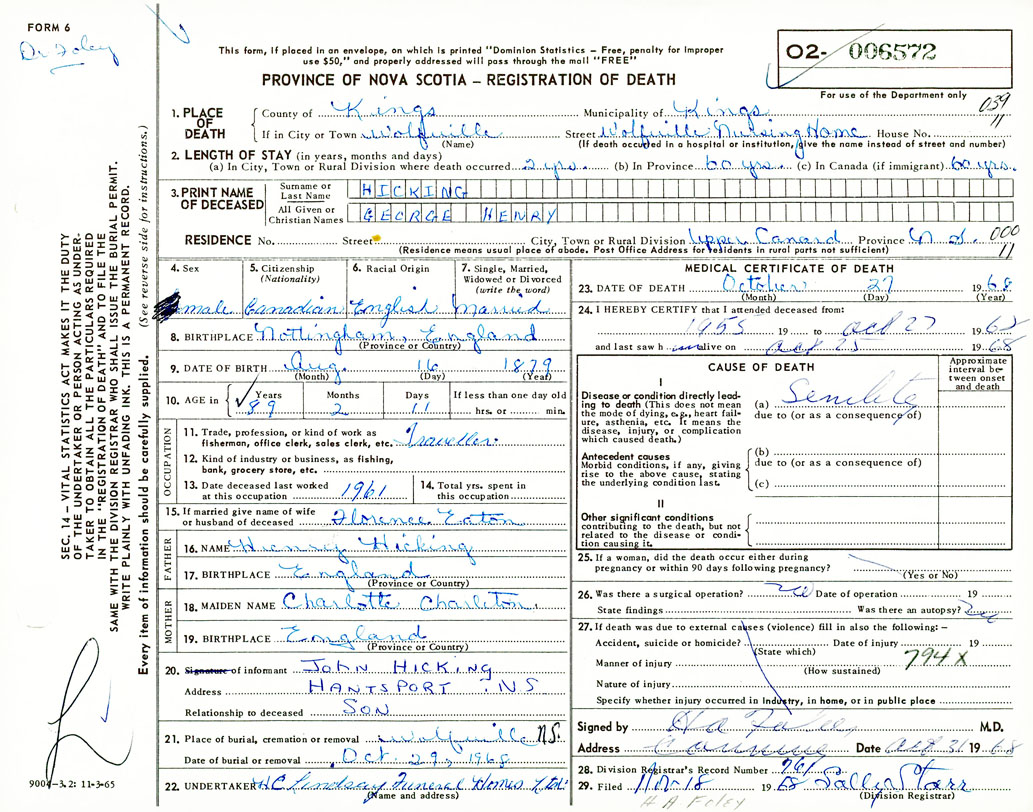 FORM 6
Dr Foley
This form, if placed in an envelope, on which is printed "Dominion Statistics – Free, penalty for improper
use $50," and properly addressed will pass through the mail "FREE"
PROVINCE OF NOVA SCOTIA – REGISTRATION OF DEATH
02- 006572
For use of the Department only
039
11
1. PLACE OF DEATH
County of Kings Municipality of Kings
If in City or Town Wolfville Street Wolfville Nursing Home House No.
(Name) (If death occurred in a hospital or institution, give the name instead of street and number)
2. LENGTH OF STAY (in years, months and days)
(a) In City, Town or Rural Division where death occurred 2 yrs. (b) In Province 60 yrs. (c) In Canada (if immigrant) 60 yrs.
3. PRINT NAME OF DECEASED
Surname or Last Name HICKING
All Given or Christian Names GEORGE HENRY
RESIDENCE No. Street City, Town or Rural Division Upper Canard Province N.S. 000
(Residence means usual place of abode. Post Office Address for residents in rural parts not sufficient) 11
4. Sex male
5. Citizenship (Nationality) Canadian
6. Racial Origin English
7. Single, Married, Widowed or Divorced (write the word) Married
8. BIRTHPLACE Nottingham, England
(Province or Country)
9. DATE OF BIRTH Aug. 16 1879
(Month) (Day) (Year)
10. AGE in Years 89 Months 2 Days 11 If less than one day old hrs. or min.
OCCUPATION
11. Trade, profession, or kind of work as
fisherman, office clerk, sales clerk, etc. Traveller
12. Kind of industry or business, as fishing,
bank, grocery store, etc.
13. Date deceased last worked
at this occupation 1961
14. Total yrs. spent in
this occupation
15. If married give name of wife
or husband of deceased Florence Eaton
FATHER
16. NAME Henry Hicking
17. BIRTHPLACE England
(Province or Country)
MOTHER
18. MAIDEN NAME Charlotte Charleton.
19. BIRTHPLACE England
(Province or Country)
20. Signature of informant JOHN HICKING
Address HANTSPORT . NS
Relationship to deceased SON
21. Place of burial, cremation or removal Wolfville N.S.
Date of burial or removal Oct. 29, 1968
22. UNDERTAKER H.C. Lindsay Funeral Homes
(Name and address)
MEDICAL CERTIFICATE OF DEATH
23. DATE OF DEATH October 27 1968
(Month) (Day) (Year)
24. I HEREBY CERTIFY that I attended deceased from:
1955 19 to Oct 27 1968
and last saw h im alive on Oct 25 1968
CAUSE OF DEATH
Approximate interval between onset and death
I
Disease or condition directly leading
to death (This does not mean
the mode of dying, e.g., heart failure,
asthenia, etc. It means the
disease, injury, or complication
which caused death.)
(a) Senility
due to (or as a consequence of)
Antecedent causes
Morbid conditions, if any, giving
rise to the above cause, stating
the underlying condition last.
(b)
due to (or as a consequence of)
(c)
II
Other significant conditions
contributing to the death, but not
related to the disease or condition
causing it.
25. If a woman, did the death occur either during
pregnancy or within 90 days following pregnancy?
(Yes or No)
26. Was there a surgical operation? no Date of operation 19
State findings Was there an autopsy? no
27. If death was due to external causes (violence) fill in also the following: –
Accident, suicide or homicide? Date of injury 19
(State which)
Manner of injury 794X
(How sustained)
Nature of injury
Specify whether injury occurred in Industry, in home, or in public place
Signed by H A Foley M.D.
Address Canning Date Oct 31 1968
28. Division Registrar's Record Number 761
29. Filed Nov 18 19 68 Starr
(Division Registrar)
H A Foley
SEC. 14 – VITAL STATISTICS ACT MAKES IT THE DUTY
OF THE UNDERTAKER OR PERSON ACTING AS UNDERTAKER
TO OBTAIN ALL THE PARTICULARS REQUIRED
IN THE "REGISTRATION OF DEATH" AND TO FILE THE
SAME WITH THE DIVISION REGISTRAR WHO SHALL ISSUE THE BURIAL PERMIT.
WRITE PLAINLY WITH UNFADING INK. THIS IS A PERMANENT RECORD.
Every item of information should be carefully supplied. (See reverse side for instructions.)
9004–3.2: 11-3-65